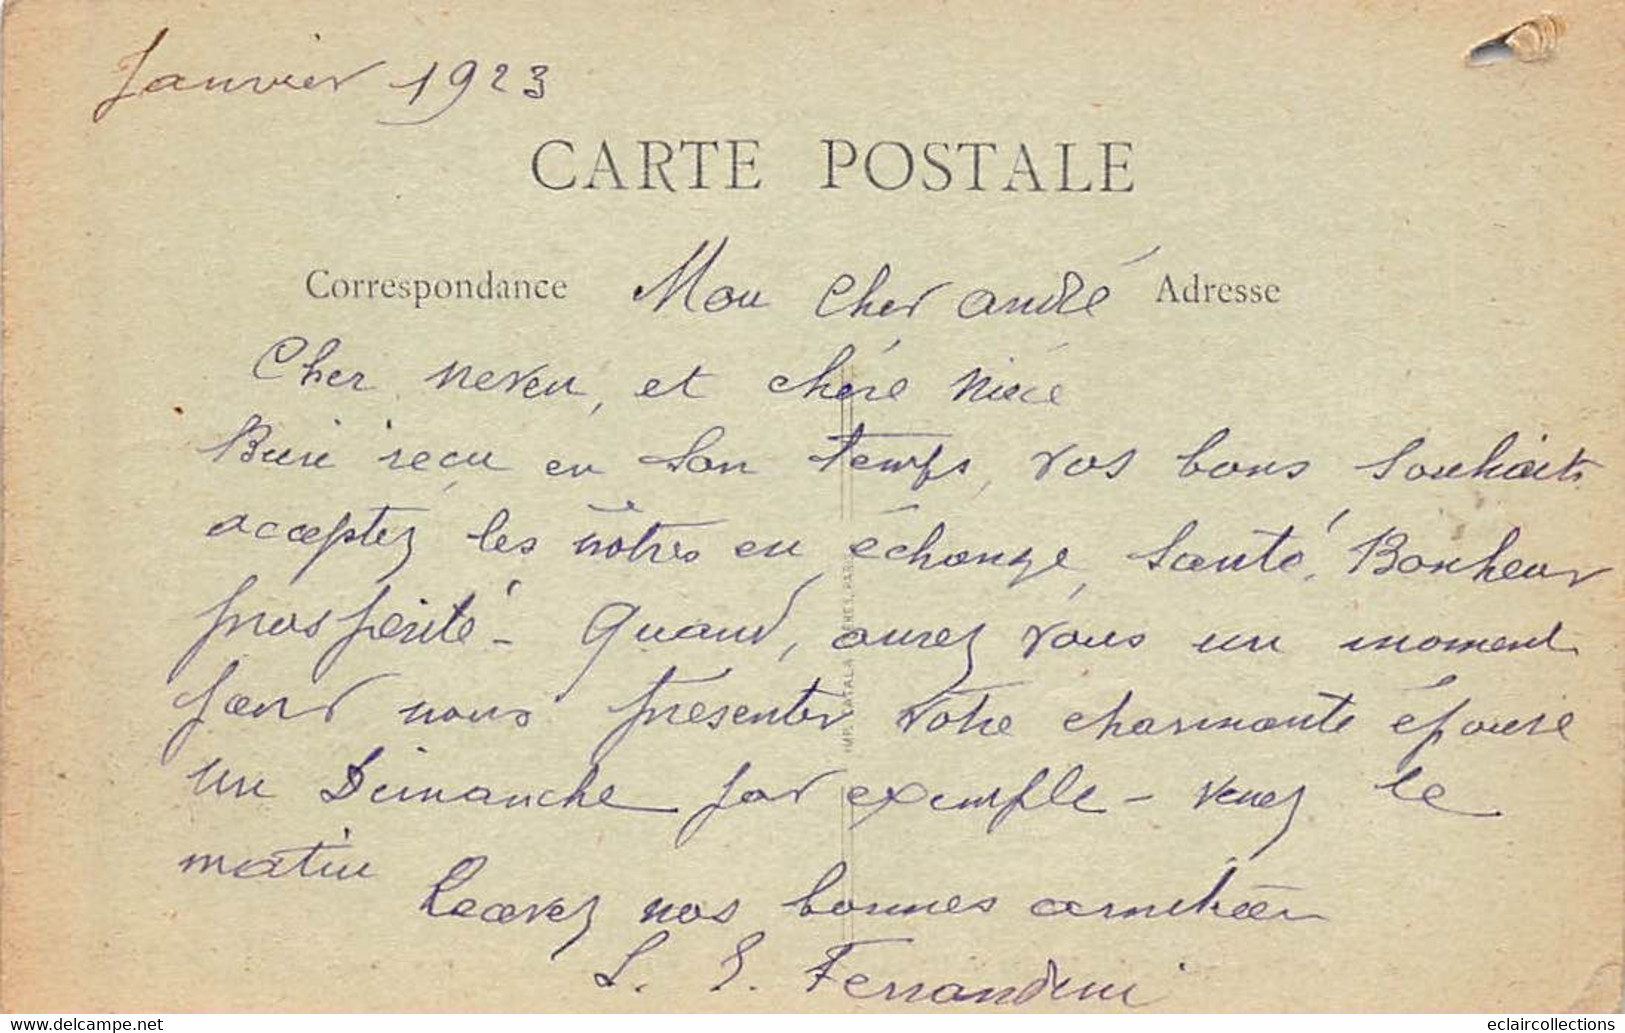 Janvier 1923
CARTE POSTALE
Correspondance Mon cher André Adresse
Cher neveu, et chère nièce
Bien reçu en son temps, vos bons souhaits
acceptez les nôtres en échange, Santé, Bonheur
prospérité - Quand, aurez vous un moment
pour nous présenter votre charmante épouse
un Dimanche par exemple - venez le
matin
Recevez nos bonnes amitiés
L. E. Ferrandini
IMP. CATALA FRERES, PARIS
www.delcampe.net
eclaircollections